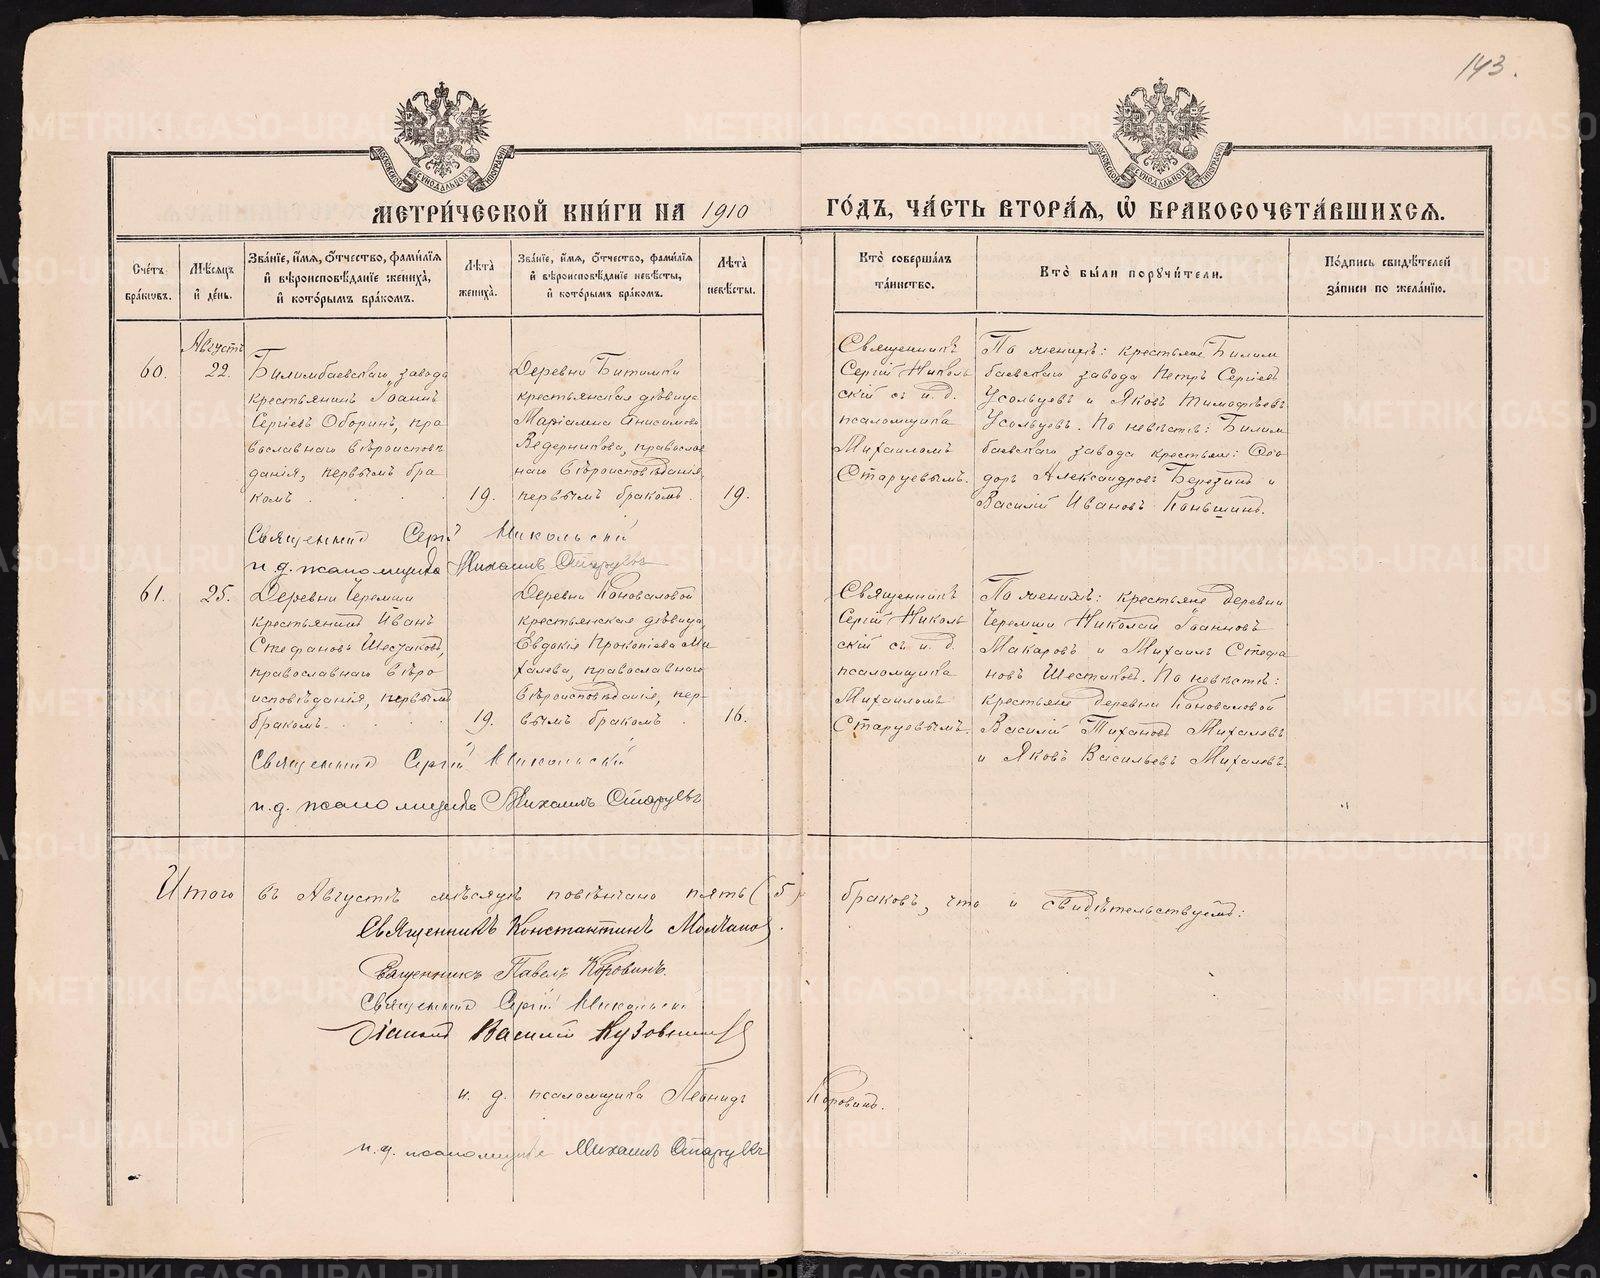 143.
МЕТРИЧЕСКОЙ КНИГИ НА 1910 ГОДЪ, ЧАСТЬ ВТОРАЯ, Ѡ БРАКОСОЧЕТАВШИХСЯ.
Счетъ браковъ.
Мѣсяцъ и день.
Званіе, имя, отчество, фамилія
и вѣроисповѣданіе жениха,
и которымъ бракомъ.
Лѣта жениха.
Званіе, имя, отчество, фамилія
и вѣроисповѣданіе невѣсты,
и которымъ бракомъ.
Лѣта невѣсты.
Кто совершалъ
таинство.
Кто были поручители.
Подпись свидѣтелей
записи по желанію.
Августъ
60.
22.
Билимбаевскаго завода
крестьянинъ Іоаннъ
Сергіевъ Оборинъ, пра
вославнаго вѣроиспов
данія, первымъ бра
комъ
19.
Деревни Битимки
крестьянская дѣвица
Маріамна Анисимова
Ведерникова, православ
наго вѣроисповѣданія,
первымъ бракомъ.
19.
Священникъ
Сергій Николь
скій съ и. д.
псаломщика
Михаиломъ
Старцевымъ.
По женихѣ: крестьяне Билим
баевскаго завода Петръ Сергіевъ
Усольцевъ и Яковъ Тимофѣевъ
Усольцевъ. По невѣстѣ: Билим
баевскаго завода крестьяне: Ѳео
доръ Александровъ Березинъ и
Василій Ивановъ Коньшинъ.
Священникъ Сергій Никольскій
и. д. псаломщика Михаилъ Старцевъ
61.
25.
Деревни Черемши
крестьянинъ Иванъ
Стефановъ Шестаковъ,
православнаго вѣро
исповѣданія, первымъ
бракомъ
19.
Деревни Коноваловой
крестьянская дѣвица
Евдокія Прокопіева Ми
халева, православнаго
вѣроисповѣданія, пер-
вымъ бракомъ.
16.
Священникъ
Сергій Николь
скій съ и. д.
псаломщика
Михаиломъ
Старцевымъ.
По женихѣ: крестьяне деревни
Черемши Николай Іоанновъ
Макаровъ и Михаилъ Стефа
новъ Шестаковъ. По невѣстѣ:
крестьяне деревни Коноваловой
Василій Тихановъ Михалевъ
и Яковъ Васильевъ Михалевъ.
Священникъ Сергій Никольскій
и. д. псаломщика Михаилъ Старцевъ
Итого въ Августѣ мѣсяцѣ повѣнчано пять (5) браковъ, что и свидѣтельствуемъ:
Священникъ Константинъ Молчановъ.
Священникъ Павелъ Коровинъ.
Священникъ Сергій Никольскій
Діаконъ Василій
и. д. псаломщика Леонидъ Коровинъ.
и. д. псаломщика Михаилъ Старцевъ
METRIKI.GASO-URAL.RU